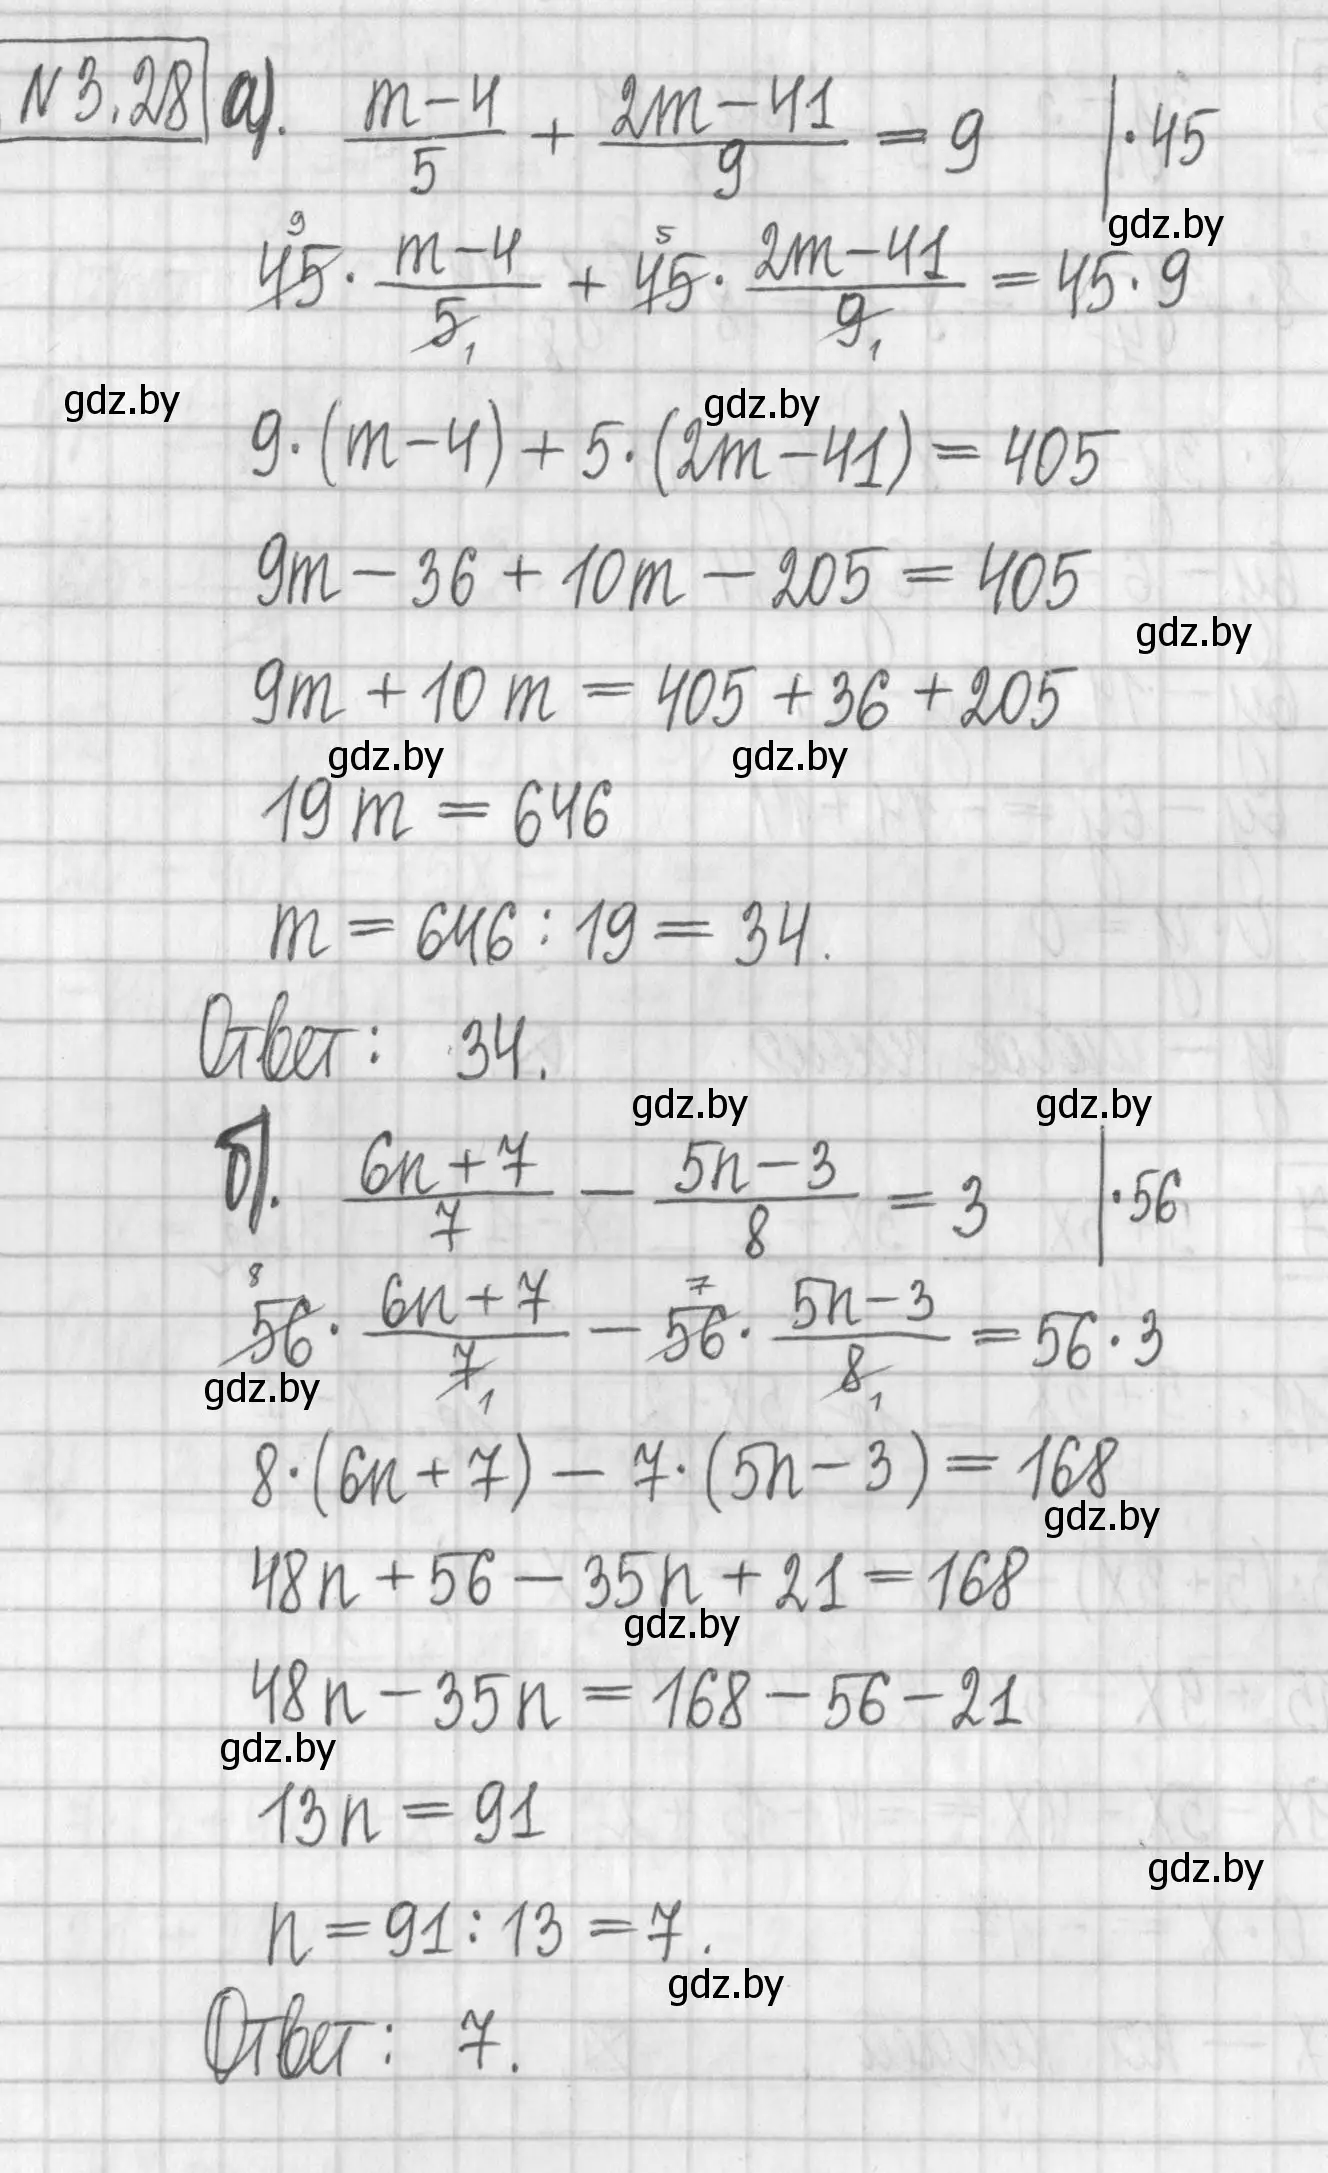 N 3.28 а). (m-4)/5 + (2m-41)/9 = 9 | · 45
gdz.by
45⁹ · (m-4)/5₁ + 45⁵ · (2m-41)/9₁ = 45 · 9
gdz.by gdz.by
9 · (m-4) + 5 · (2m-41) = 405
9m - 36 + 10m - 205 = 405
gdz.by
9m + 10m = 405 + 36 + 205
gdz.by gdz.by
19m = 646
m = 646 : 19 = 34.
Ответ: 34.
gdz.by gdz.by
б). (6n+7)/7 - (5n-3)/8 = 3 | · 56
56⁸ · (6n+7)/7₁ - 56⁷ · (5n-3)/8₁ = 56 · 3
gdz.by
8 · (6n+7) - 7 · (5n-3) = 168
gdz.by
48n + 56 - 35n + 21 = 168
gdz.by
48n - 35n = 168 - 56 - 21
gdz.by
13n = 91
gdz.by
n = 91 : 13 = 7.
gdz.by
Ответ: 7.